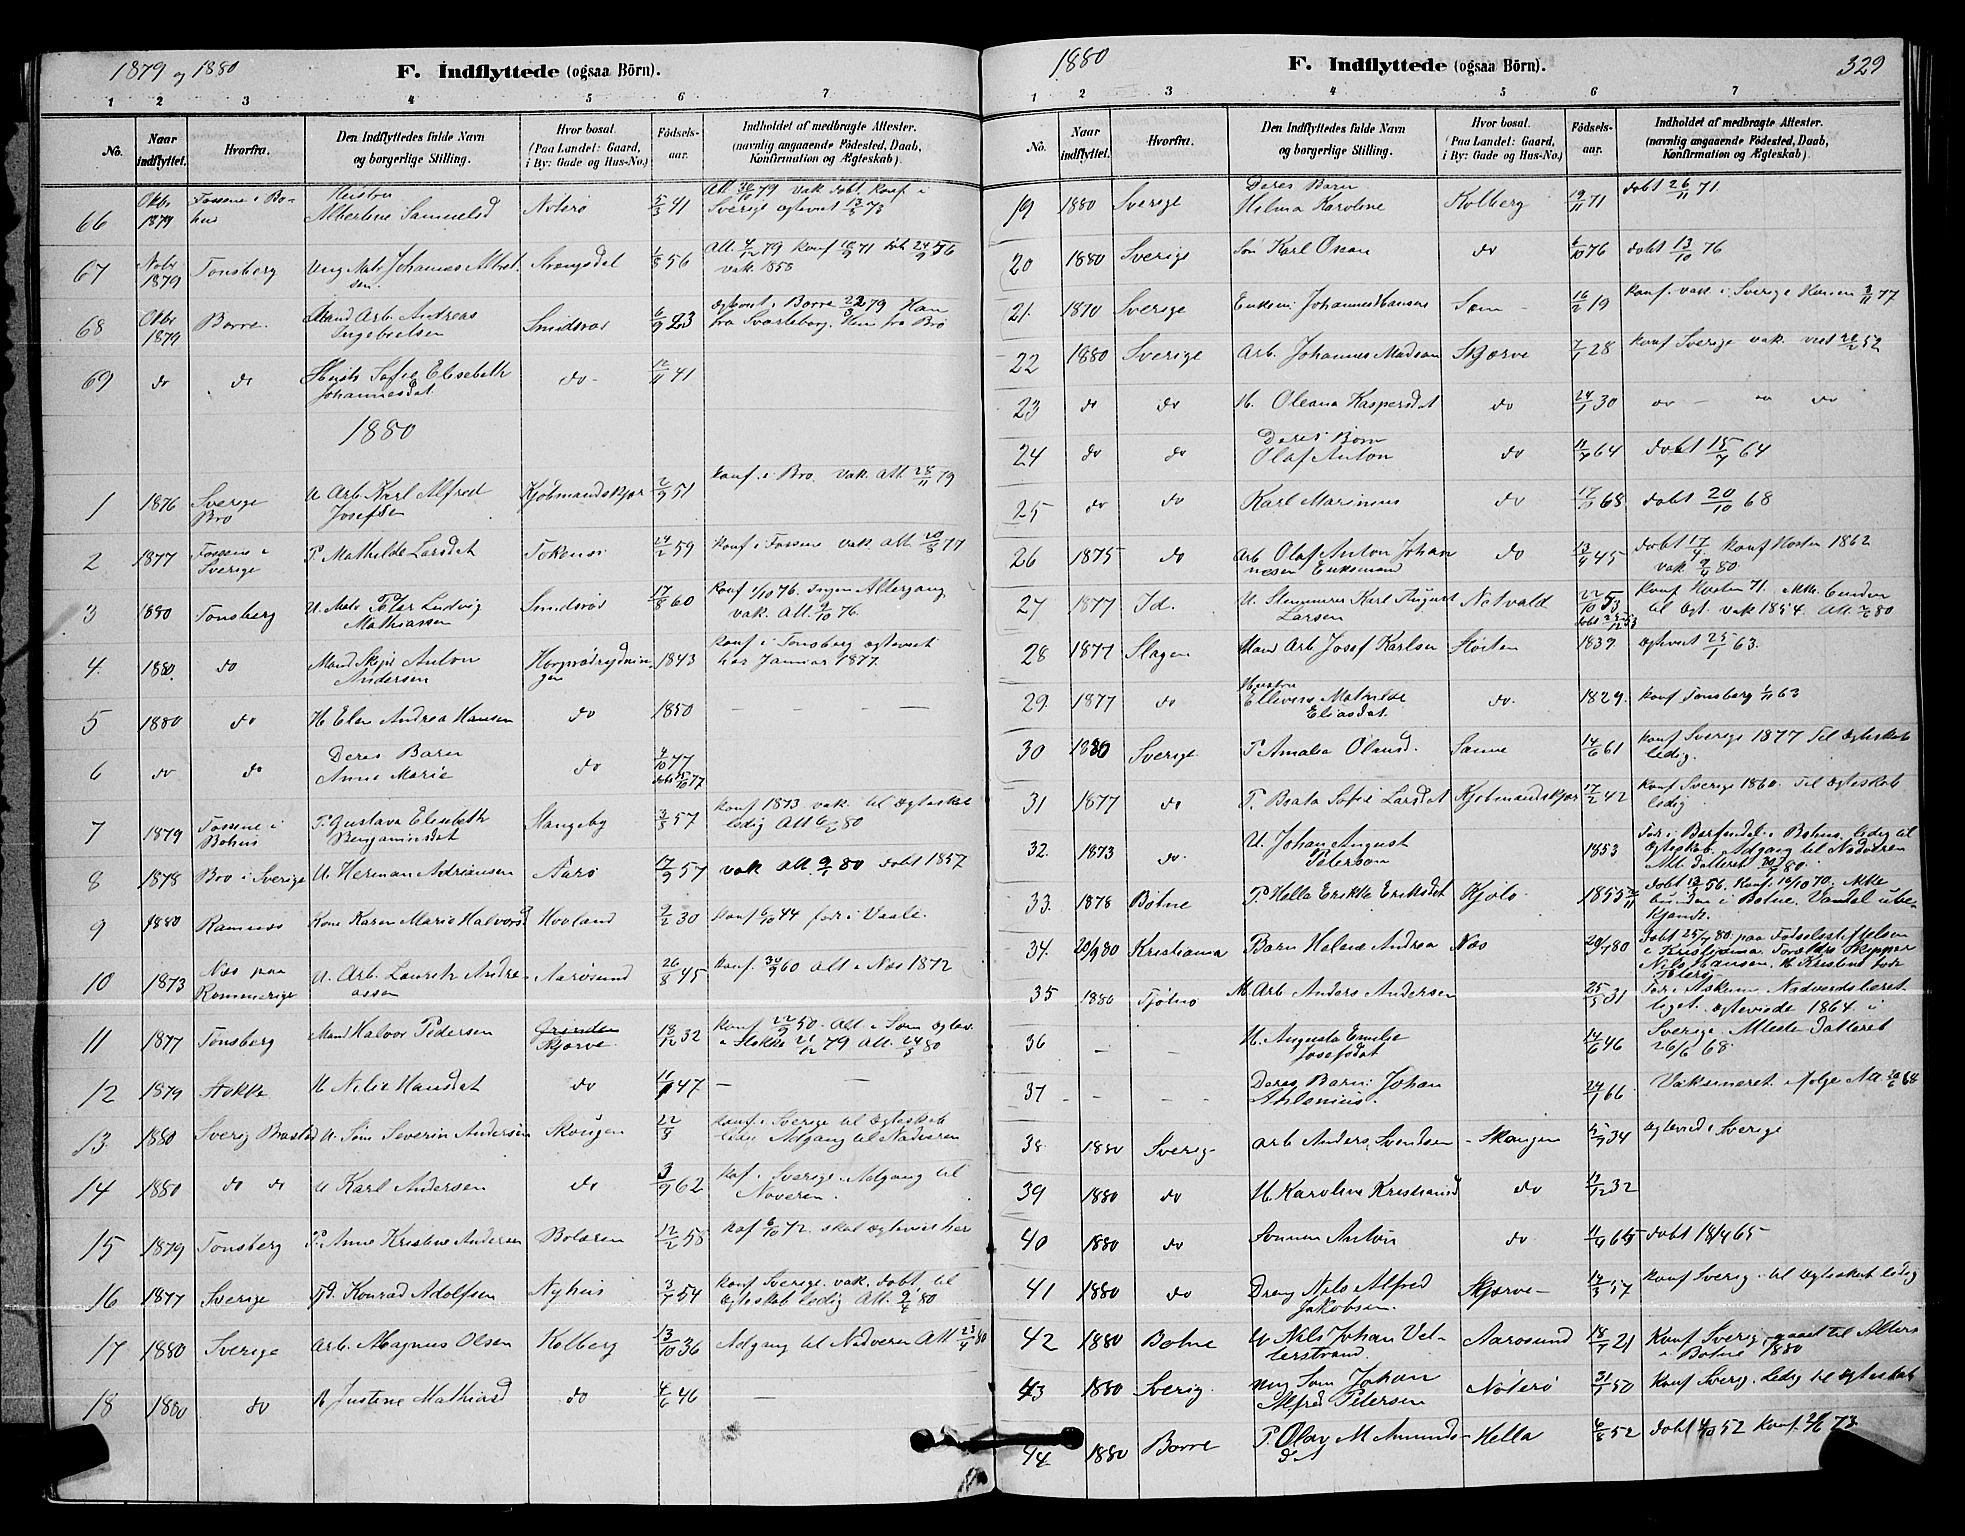 1879 og 1880
F. Indflyttede (ogsaa Börn).
1 2 3 4 5 6 7
No. Naar indflyttet. Hvorfra. Den Indflyttedes fulde Navn og borgerlige Stilling. Hvor bosat. (Paa Landet: Gaard, i By: Gade og Hus-No.) Födsels-aar. Indholdet af medbragte Attester. (navnlig angaaende Födested, Daab, Konfirmation og Ægteskab).
66 Oktb 1879 Fossene i Bohus Hustru Albertine Samuelsd Nøterø 41
Sverige
67 Nobr 1879 Tønsberg Ung Matr Johannes Albretsen 56 Att. 4/12 79 konf 71
vak. 1858
68 Oktbr 1879 Borre Mand Arb. Andreas Ingebretsen Smidsrød 6/9 23 Ægteviet i Borre 79 Han
fra Svarteborg. Hun fra Bro
69 do do Hustr Sofie Elisebeth Johannesdat do 12/11 41
1880
1 1876 Sverige Bro U Arb. Karl Alfred Josefsen Kjøbmandskjær 2/9 51 konf. i Bro. vak. Att. 28/11 79
2 1877 Fossene i Sverige P. Mathilde Larsdat 24/2 59 konf i Fossene vak. Att. 20/8 77
3 1880 Tønsberg U. Matr Peter Ludvig Mathiassen Smidsrød 17/8 60 konf 1/10 76. Ingen Altergang
vak. Att. 9/10 76.
4. 1880. do Mand Skip Anton Andersen 1843 konf i Tønsberg ægteviet
her Januar 1877.
5 1880 do H. Elen Andrea Hansen do 1850 — — — —
6 do do Deres Barn Anne Marie do 4/10 77
7 1879 Fossene i Bohus P. Gustava Elisebeth Benjaminsdat Stangeby 57 konf 1873 vak. til Ægteskab
ledig Att 6/2 80
8 1878 Bro i Sverige U. Herman Adriansen Aarø 17/9 57 vak Att 9/1 80 døbt 1857
9 1880 Ramnæs Kone Karen Marie Halvorsd Hovland 9/2 30 konf 44 før i Vaale.
10 1873 Næs paa Rommerige U. Arb. Lauritz Andreassen Aarøsund 26/8 45 konf. 30/9 60 Att i Næs 1872
11 1877 Tønsberg Mand Halvor Pedersen Skjærve 18/12 32 konf 22/9 50. Att. i Sem Ægtev.
i Stokke 21/12 79 Att. 24/3 80
12 1879 Stokke H Nilie Hansdat do 47 — —
13. 1880 Sverig U. Søn Severin Andersen Skougen 22/8 konf. i Sverige til Ægteskab
ledig Adgang til Nadveren
14 1880 do do U Karl Andersen do 3/9 62 kof. i Sverige. Adgang til
15 1879 Tønsberg P. Anne Kristine Andersen Bolæren 12/2 58 kof 6/10 72. skal Ægtevies her
16 1877 Sverige Konrad Adolfsen Nyhus 3/7 54 konf Sverige. vak. døbt til
Ægteskab ledig Att. 80
17 1880 Sverige Arb. Magnus Olsen Kolberg 13/10 36 Adgang til Nadveren Att 23/4 80
18 1880 do H Justine Mathiasd do 4/6 46 —
1880
F. Indflyttede (ogsaa Börn).
329
1 2 3 4 5 6 7
No. Naar indflyttet. Hvorfra. Den Indflyttedes fulde Navn og borgerlige Stilling. Hvor bosat. (Paa Landet: Gaard, i By: Gade og Hus-No.) Födsels-aar. Indholdet af medbragte Attester. (navnlig angaaende Födested, Daab, Konfirmation og Ægteskab).
19 1880 Sverige Deres Barn Hilma Karoline Kolberg 19/11 71 døbt 26/11 71.
20 1880 Sverige Søn Karl Oscar do 6/10 76 døbt 13/10 76
21. 1870 Sverige Enkem. Johannes Hansen Sem 16/2 19 konf. vak. i Sverige 77
22 1880 Sverige Arb. Johannes Madsen Skjærve 7/1 28 konf Sverige vak. viet 52
23 do do H. Oleana Kaspersdat do 24/1 30 do — do do
24 do do Deres Børn Olaf Anton do 11/7 64 døbt 15/7 64
25 do do Karl Marinius do 68 døbt 20/10 68
26 1875 do Arb Olaf Anton Johannesen Enkemand do 13/4 45 døbt 17/4 konf Høsten 1862
vak 80
27 1877 Id. U. Stenmurer Karl August Larsen Nesvald 22/10 53 konf Høsten 71. ikke bunden
til Ægt. vak 1854. Att. 80
28 1877 Slagen Mand Arb. Josef Karlsen 1839 Ægteviet 25/1 63.
29. 1877 do Hustru Mathilde Eliasdat do. 1829. konf Tønsberg 63
30 1880 Sverige P. Amalia Olausd. Sanne 14/6 61 konf Sverige 1877 til Ægteskab
ledig.
31 1877 do P. Beata Sofie Larsdat Kjøbmandskjær 17/2 42 konf Sverige 1860. til Ægteskab
ledig.
32. 1873 do. U. Johan August Peterson 1853 Før i i Bohus. ledig til
Ægteskab. Adgang til Nadveren
Att. datteret 80
33. 1878 Botne P. Hella Erikke Eriksdat Kjølø 1855 døbt 56. Konf. 70. ikke
bunden i Botne. Vandel ube-
kjendt.
34. 20/9 80 Kristiania Barn Helene Andrea Næs 20/7 80 døbt 25/7 80. paa Fødselsstiftelsen
i Kristjania. Forældre Skipper
Nils Hansen. H Kristine
35 1880 Tjølnø M. Arb Anders Andersen 25/5 31 Før i Askum.
Ægteviede 1864. i
36 — — H. Augusta Emilie Josefsdat 14/6 46 Sverige. Atteste datteret
26/6 68.
37 — — Deres Barn: Johan Antonius. 24/1 66 Vaksineret ifølge Att. 68
38 1880 Sverig Arb Anders Svendsen Skougen 5/9 34 Ægteviet i Sverige
39 1880 do H. Karoline Kristiansd do 12/12 32
40 1880 do Sønnen Anton do 11/4 65 døbt 18/4 65
41 1880 do Dreng Nils Alfred Jakobsen. Skjærve 14/3 57 konf Sverig. til Ægteskab ledig
42 1880 Botne U Nils Johan Vetterstrand Aarøsund 18/7 21 Konf Sverig. gaaet til Alters
i Botne 1880
43 1880 Sverig. ung Søm Johan Alfred Petersen Nøterø 31/1 50 konf Sverig. ledig til Ægteskab
44 1880 Borre P. Olav M Amundsdt Hella 6/8 52 døbt 52 konf. 73